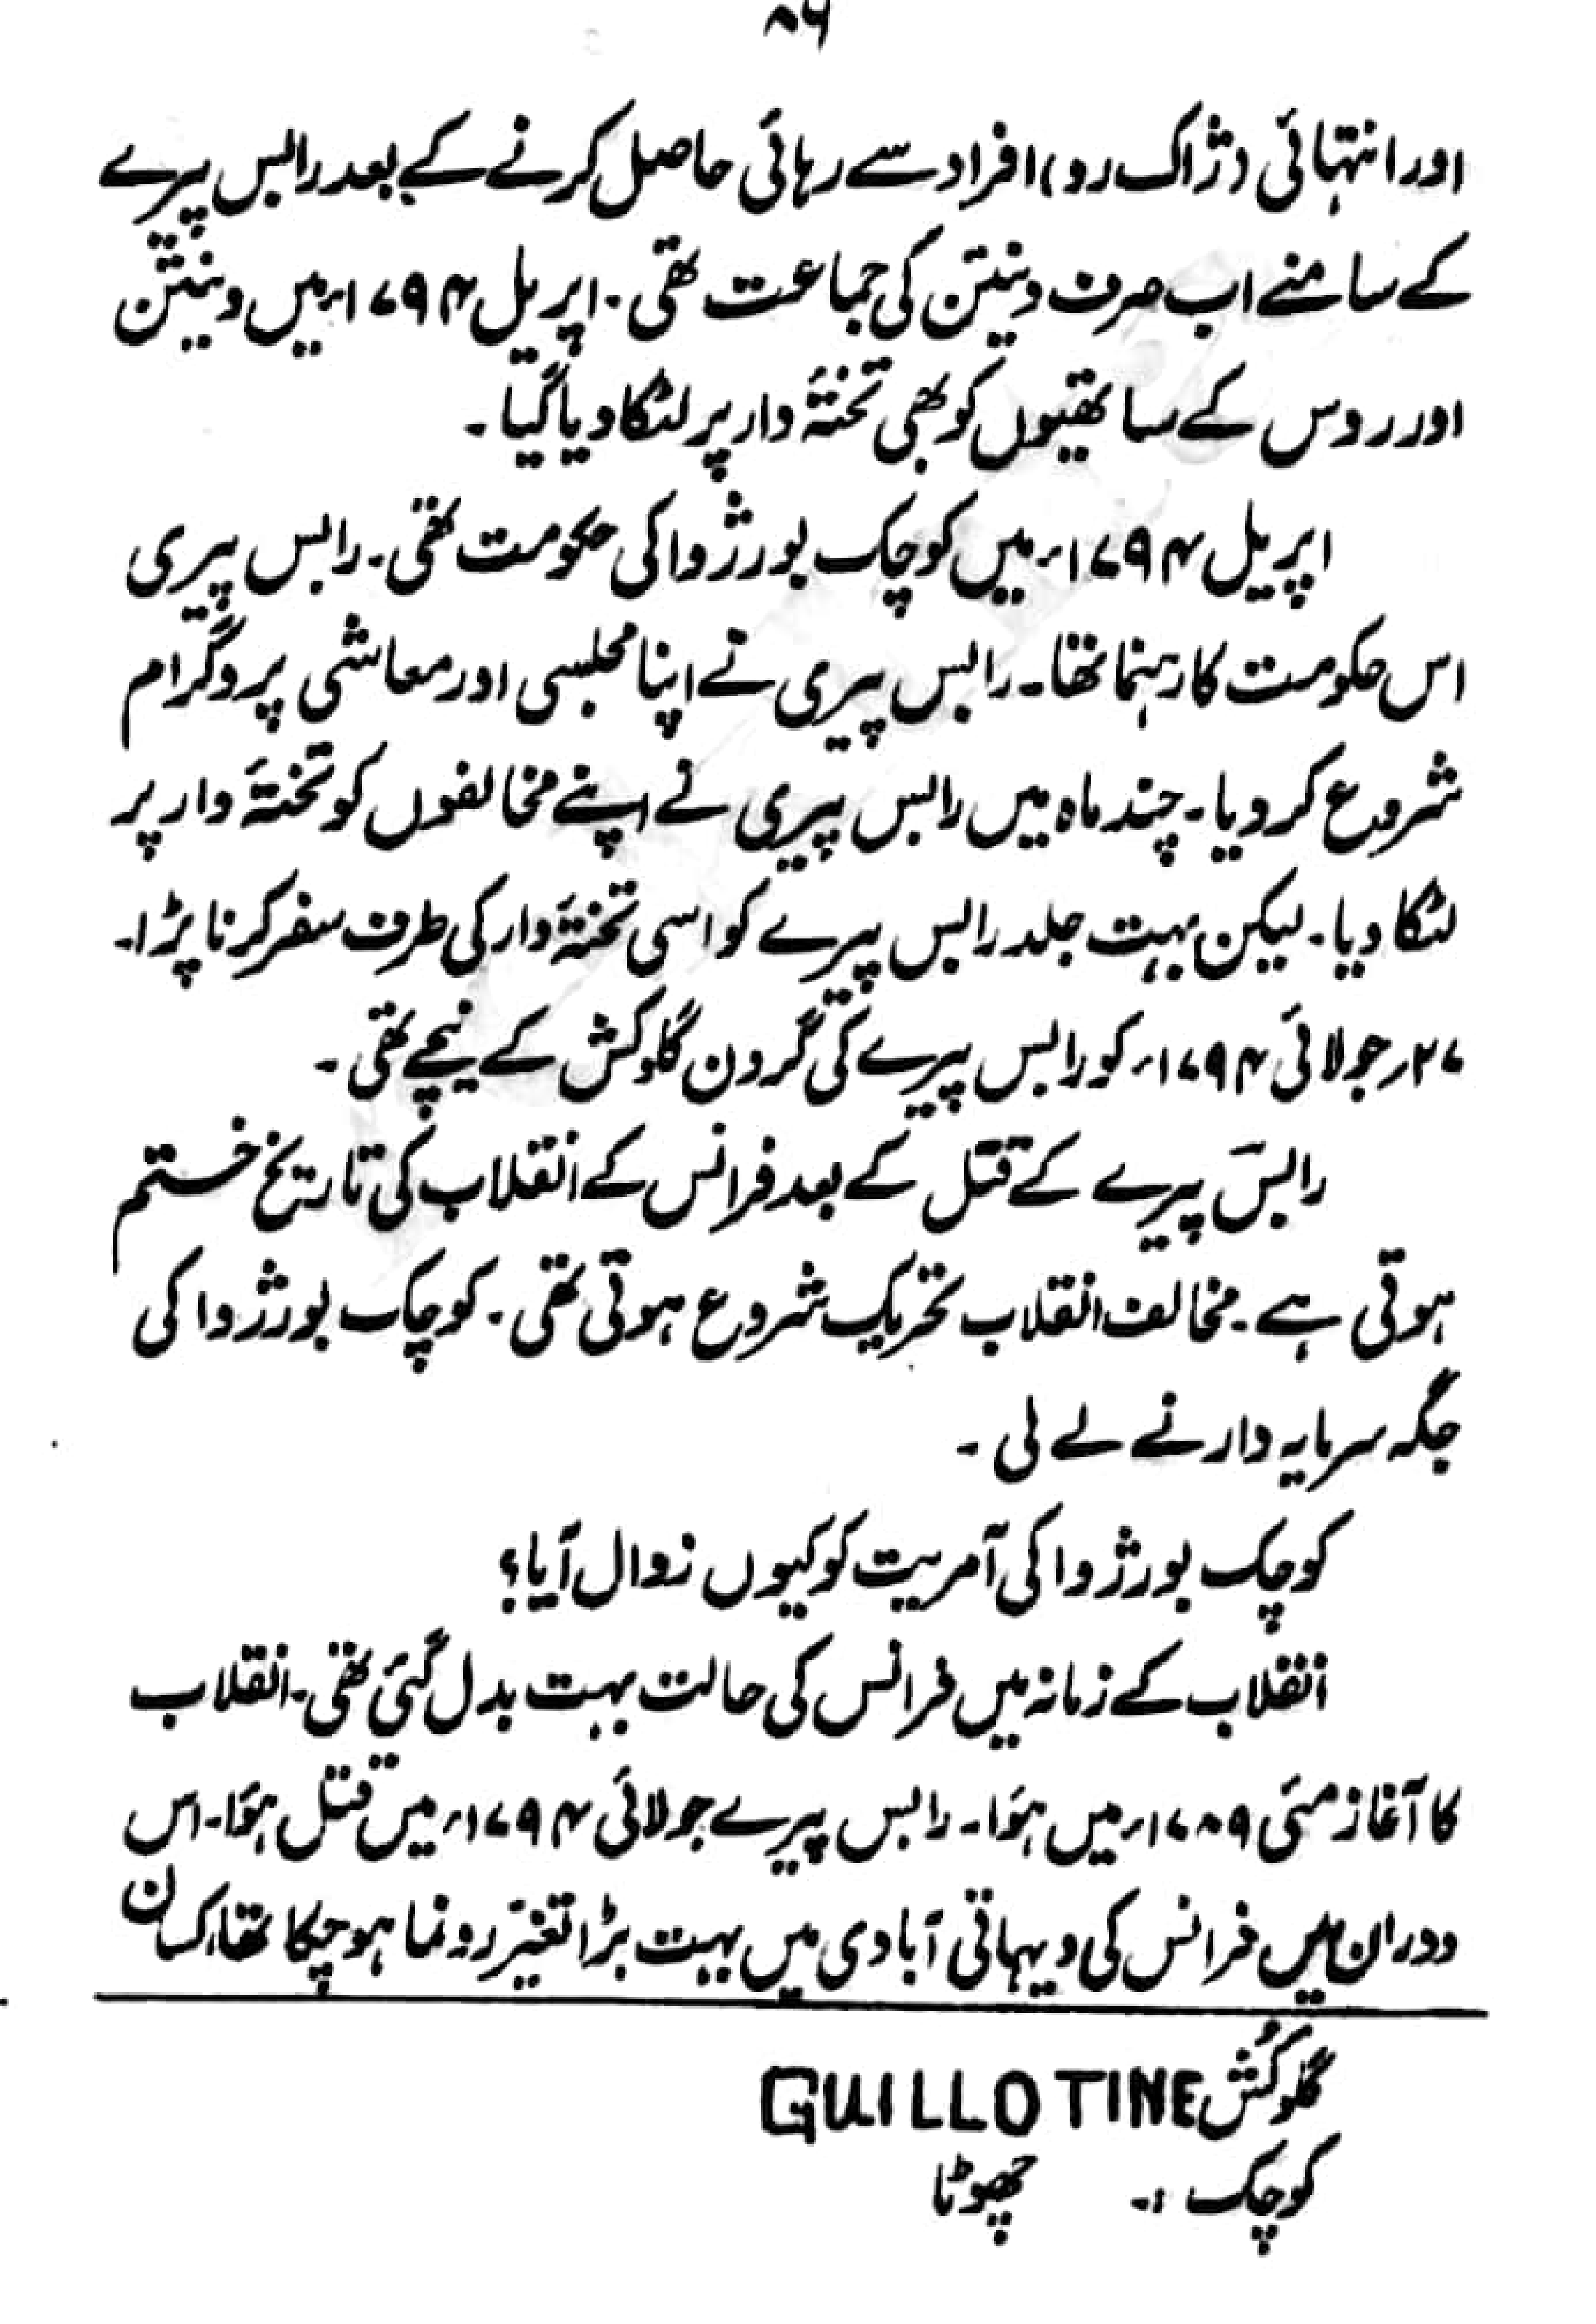 ۸۶
اور انتہائی (ژاک رو) افراد سے رہائی حاصل کرنے کے بعد رابس پیرے
کے سامنے اب صرف دینتن کی جماعت تھی۔ اپریل ۱۷۹۴ء میں دینتن
اور روس کے ساتھیوں کو بھی تختۂ دار پر لٹکا دیا گیا۔
اپریل ۱۷۹۴ء میں کوچک بورژوا کی حکومت تھی۔ رابس پیری
اس حکومت کا رہنما تھا۔ رابس پیری نے اپنا مجلسی اور معاشی پروگرام
شروع کر دیا۔ چند ماہ میں رابس پیری نے اپنے مخالفوں کو تختۂ دار پر
لٹکا دیا۔ لیکن بہت جلد رابس پیرے کو اسی تختۂ دار کی طرف سفر کرنا پڑا۔
۲۷؍ جولائی ۱۷۹۴ء کو رابس پیرے کی گردن گلوکش کے نیچے تھی۔
رابس پیرے کے قتل کے بعد فرانس کے انقلاب کی تاریخ ختم
ہوتی ہے۔ مخالف انقلاب تحریک شروع ہوتی تھی۔ کوچک بورژوا کی
جگہ سرمایہ دار نے لے لی۔
کوچک بورژوا کی آمریت کو کیوں زوال آیا؟
انقلاب کے زمانہ میں فرانس کی حالت بہت بدل گئی تھی۔ انقلاب
کا آغاز مئی ۱۷۸۹ء میں ہؤا۔ رابس پیرے جولائی ۱۷۹۴ء میں قتل ہؤا۔ اس
دوران میں فرانس کی دیہاتی آبادی میں بہت بڑا تغیّر رونما ہو چکا تھا، کسان
گلوکُش GUILLOTINE
کوچک :- چھوٹا